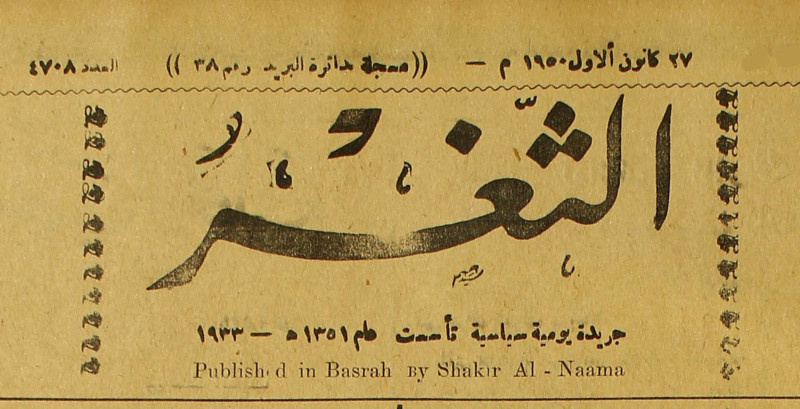 ٢٧ كانون الاول ١٩٥٠ م — ((مسجلة بدائرة البريد رقم ٣٨)) العدد ٤٧٠٨
الثَّغْرُ
جريدة يومية سياسية تأسست عام ١٣٥١ ه — ١٩٣٣
Published in Basrah By Shakir Al - Naama